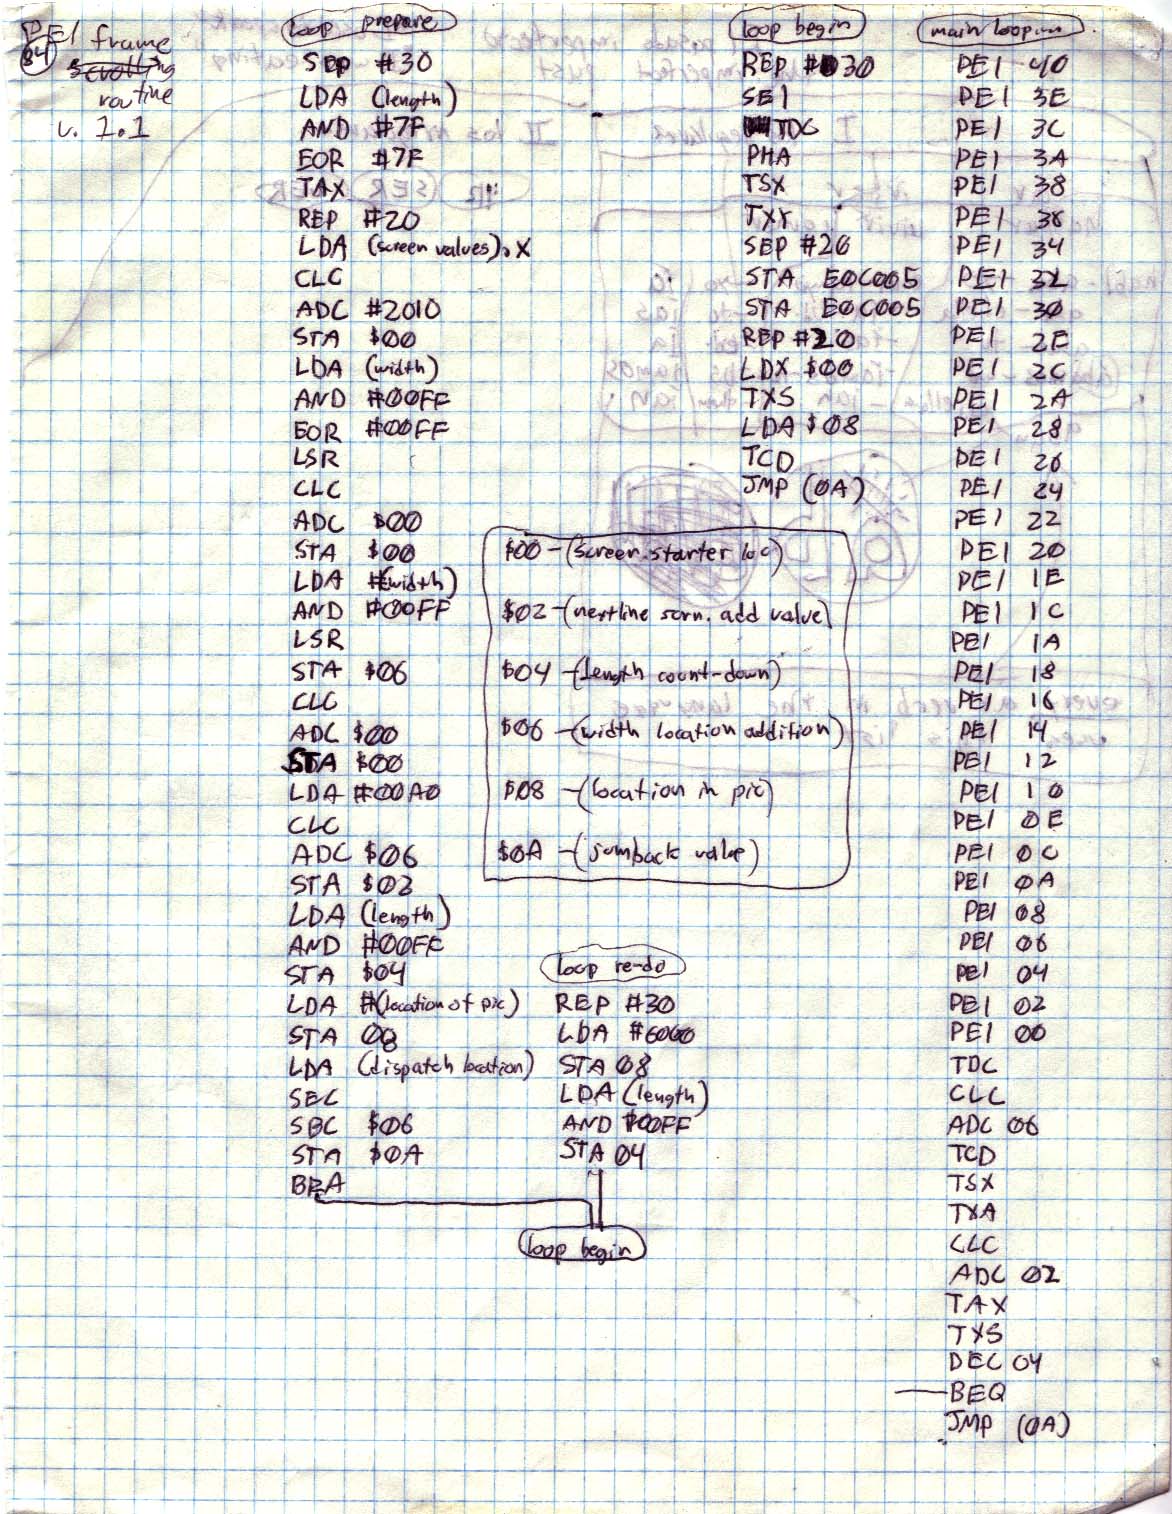 PEI
84
frame
scrolling
routine
v. 1.1
loop prepare
SEP #30
LDA (length)
AND #7F
EOR #7F
TAX
REP #20
LDA (screen values),X
CLC
ADC #2010
STA $00
LDA (width)
AND #00FF
EOR #00FF
LSR
CLC
ADC $00
STA $00
LDA #(width)
AND #00FF
LSR
STA $06
CLC
ADC $00
STA $00
LDA #00A0
CLC
ADC $06
STA $02
LDA (length)
AND #00FF
STA $04
LDA #(location of pic)
STA 08
LDA (dispatch location)
SEC
SBC $06
STA $0A
BRA
$00 - (screen starter loc)
$02 - (nextline scrn. add value)
$04 - (length count-down)
$06 - (width location addition)
$08 - (location in pic)
$0A - (jumback value)
loop re-do
REP #30
LDA #6000
STA 08
LDA (length)
AND #00FF
STA 04
loop begin
loop begin
REP #30
SEI
TDC
PHA
TSX
TXY
SEP #20
STA E0C005
STA E0C005
REP #20
LDX $00
TXS
LDA $08
TCD
JMP (0A)
main loop
PEI 40
PEI 3E
PEI 3C
PEI 3A
PEI 38
PEI 36
PEI 34
PEI 32
PEI 30
PEI 2E
PEI 2C
PEI 2A
PEI 28
PEI 26
PEI 24
PEI 22
PEI 20
PEI 1E
PEI 1C
PEI 1A
PEI 18
PEI 16
PEI 14
PEI 12
PEI 10
PEI 0E
PEI 0C
PEI 0A
PEI 08
PEI 06
PEI 04
PEI 02
PEI 00
TDC
CLC
ADC 06
TCD
TSX
TXA
CLC
ADC 02
TAX
TXS
DEC 04
BEQ
JMP (0A)